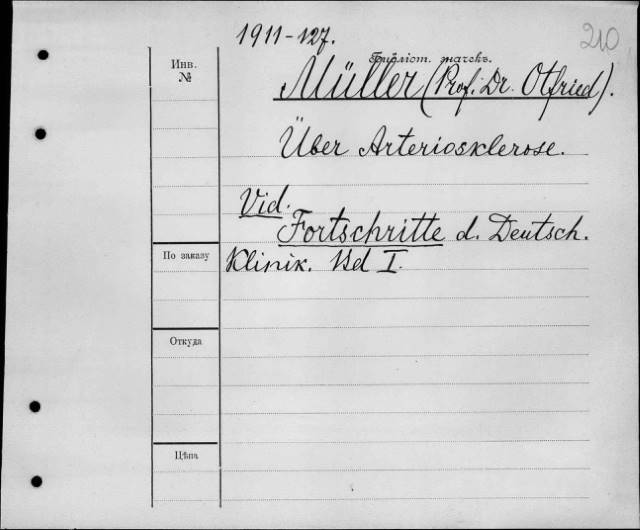 1911-127.
210
Инв.
№
Библіот. значекъ.
Müller (Prof. Dr. Otfried).
Über Arteriosklerose.
Vid.
Fortschritte d. Deutsch.
По заказу
Klinik. Bd I.
Откуда
Цѣна